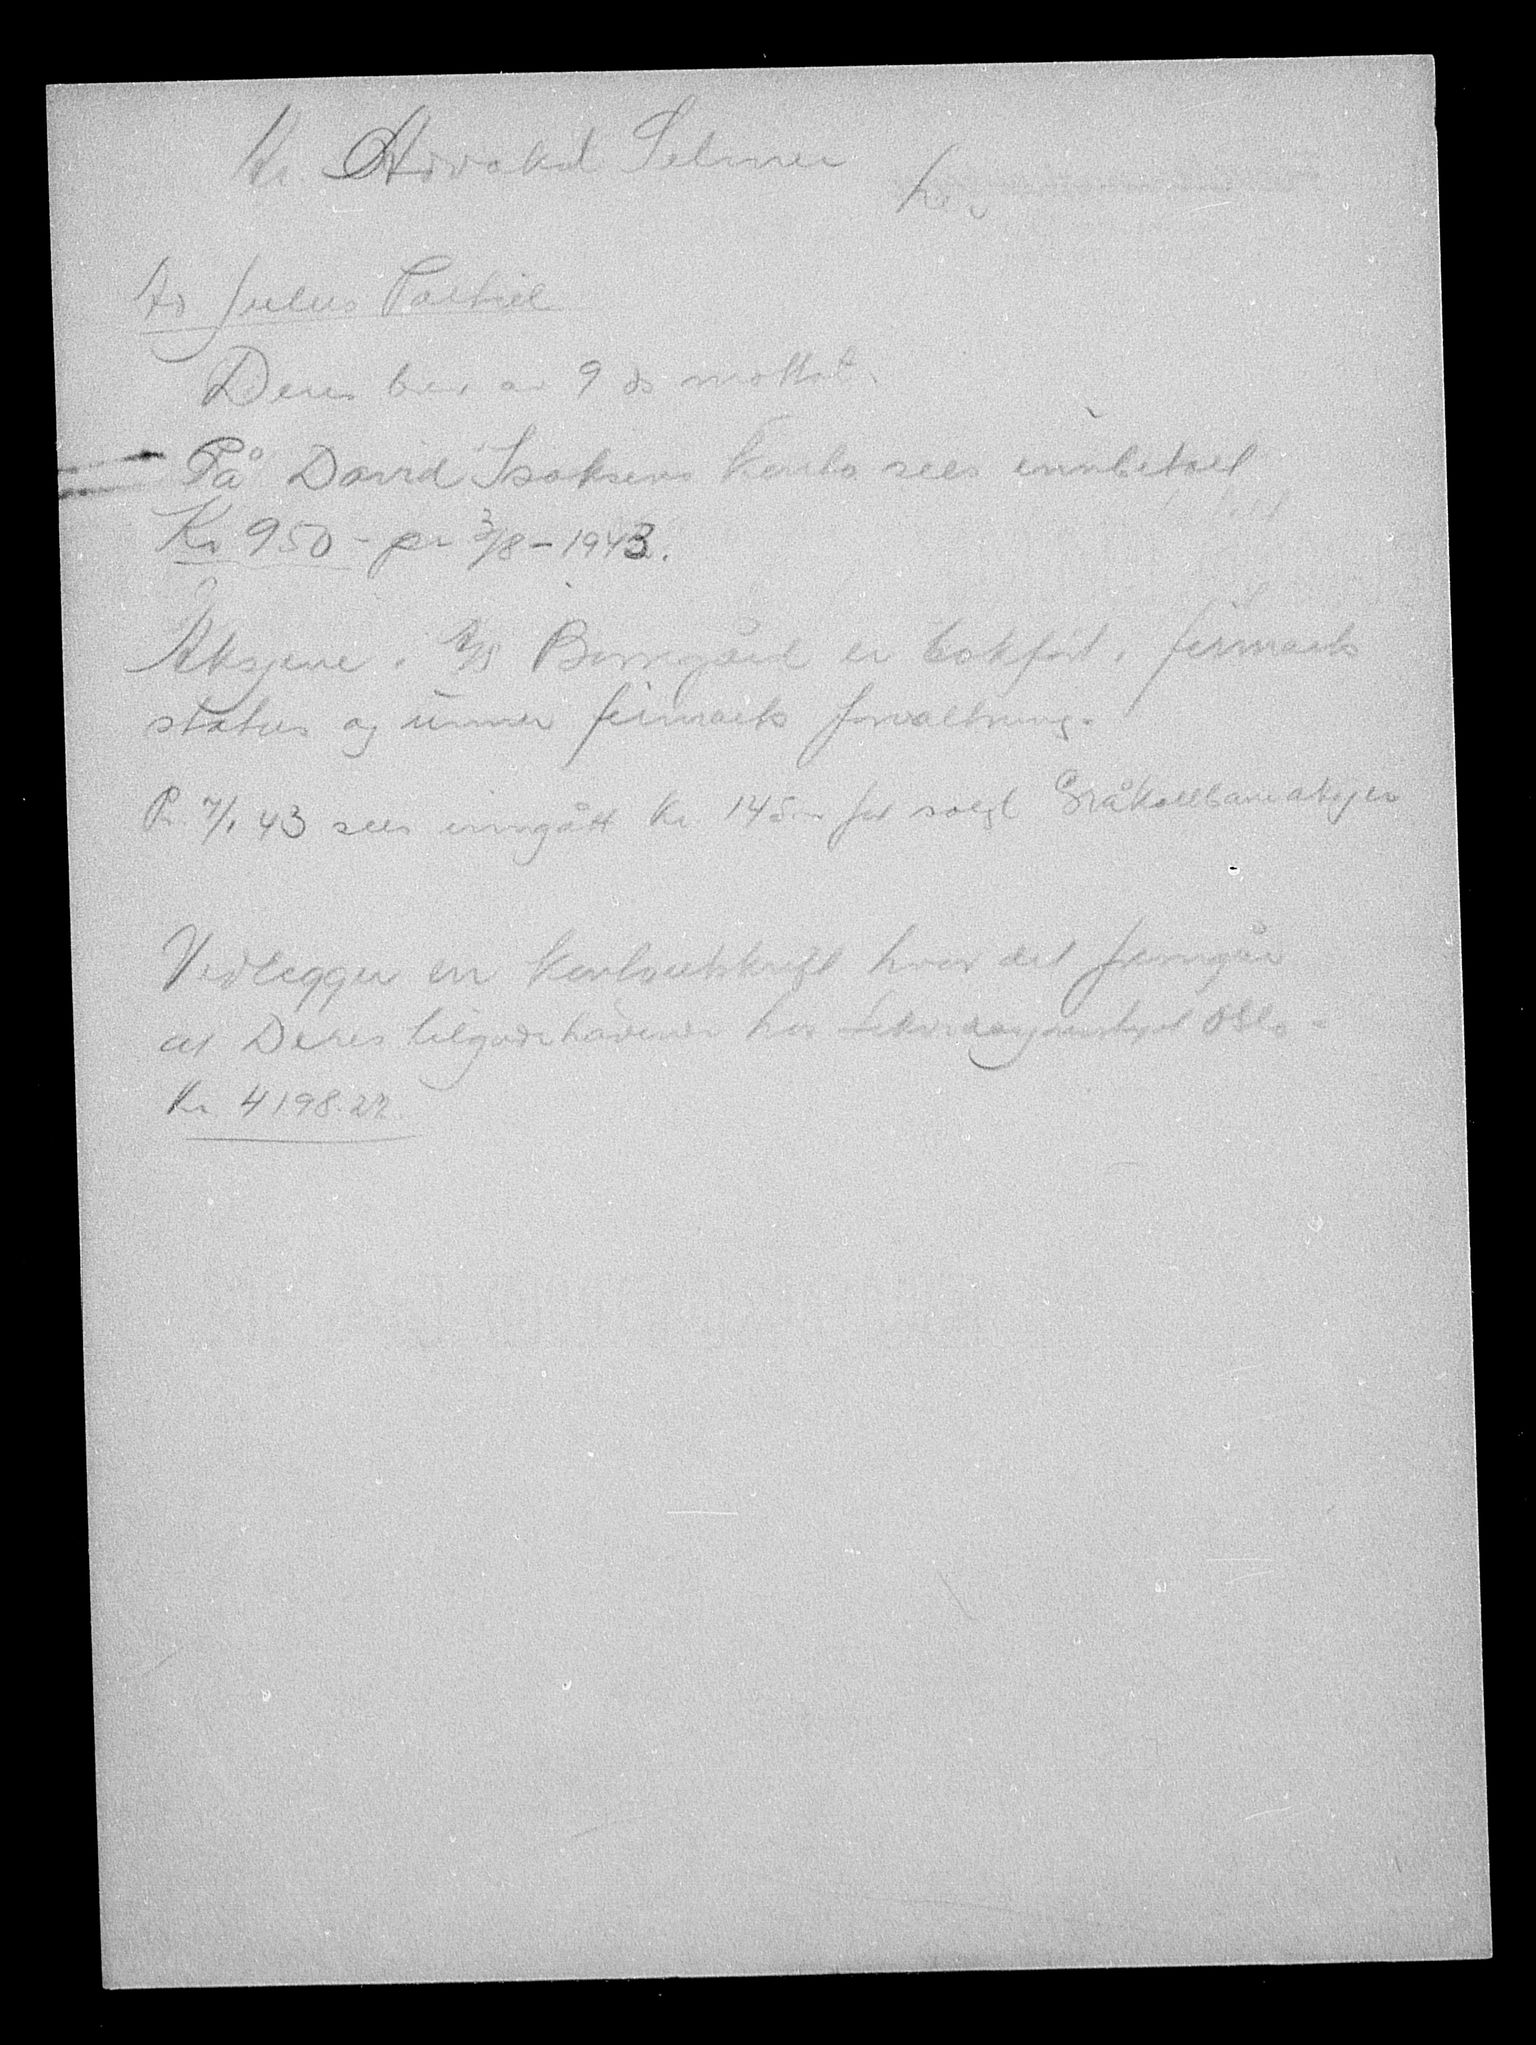 Hr. Advokat Selmer
Ad Julius Paltiel
Deres brev av 9 ds mottat.
På David Isaksens konto sees innbetalt
Kr 950 - pr 3/8 - 1943.
Aksjene i A/S Bymsgård er bokført i firmaets
status og under firmaets forvaltning.
Pr. 7/1 43 sees inngått kr 145.- for solgt Gråkallbaneaksjer
Vedlegger en kontoutskrift hvor det fremgår
at Deres tilgodehavende hos Oslo -
Kr 4198.22